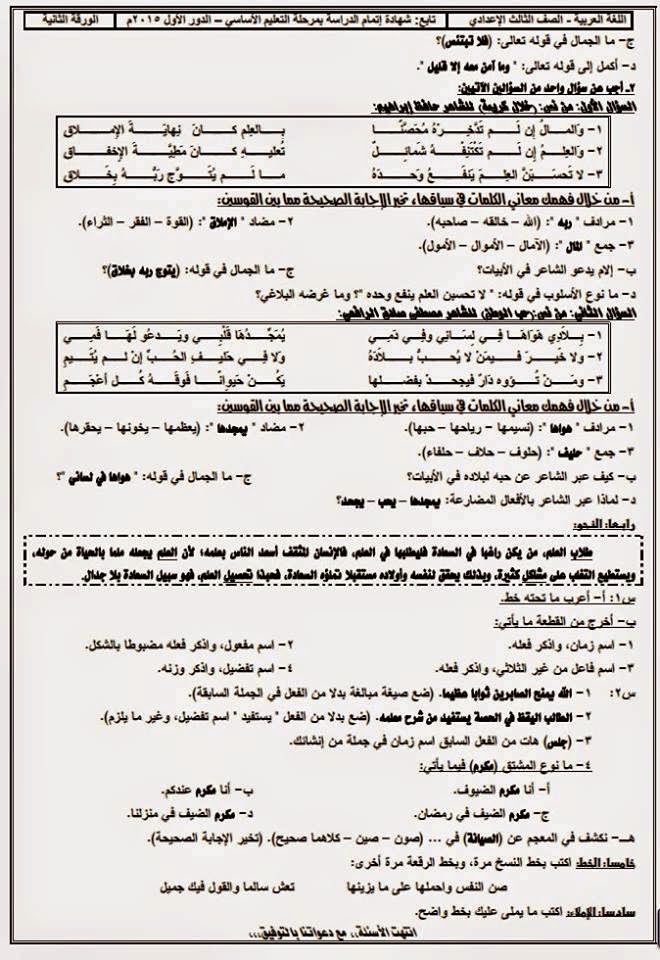 اللغة العربية - الصف الثالث الإعدادي تابع: شهادة إتمام الدراسة بمرحلة التعليم الأساسي – الدور الأول ٢٠١٥م الورقة الثانية
ج- ما الجمال في قوله تعالى: (فلا تبتئس)؟
د- أكمل إلى قوله تعالى: " وما آمن معه إلا قليل ".
٢- أجب عن سؤال واحد من السؤالين الآتيين:
السؤال الأول: من نص: (خلال كريمة) للشاعر حافظ إبراهيم:
١- وَالمــالُ إِن لَــم تَدَّخِــرهُ مُحَصَّنًــا بِــالعِلمِ كــانَ نِهايَــةَ الإِمــلاق
٢- وَالعِلــمُ إِن لَــم تَكتَنِفــهُ شَمائِــلٌ تُعليهِ كــانَ مَطِيَّــةَ الإِخفــاق
٣- لا تَحسَــبَنَّ العِلــمَ يَنفَــعُ وَحــدَهُ مــا لَــم يُتَــوَّج رَبُّــهُ بِخَــلاق
أ- من خلال فهمك معاني الكلمات في سياقها، تخير الإجابة الصحيحة مما بين القوسين:
١- مرادف " ربه ": (الله – خالقه – صاحبه). ٢- مضاد " الإملاق ": (القوة – الفقر – الثراء).
٣- جمع " المال ": (الآمال – الأموال – الأمول).
ب- إلام يدعو الشاعر في الأبيات؟ ج- ما الجمال في قوله: (يتوج ربه بخلاق)؟
د- ما نوع الأسلوب في قوله: " لا تحسبن العلم ينفع وحده "؟ وما غرضه البلاغي؟
السؤال الثاني: من نص: (حب الوطن) للشاعر مصطفى صادق الرافعي:
١- بِــلادي هَوَاهــا فِــي لِســانِي وفِي دَمِــي يُمَجِّــدُها قَلْبِــي ويَــدعُو لَهَــا فَمِــي
٢- ولا خَيــرَ فــيمَنْ لا يُحــبُّ بــلادَهُ وَلا فِــي حَليــفِ الحُــبِّ إنْ لــم يُتَيَّمِ
٣- ومَــنْ تُــؤْوِهِ دَارٌ فيجحــدُ فضلــها يَكُــنْ حَيوانًــا فَوقَــهُ كُــل أعْجَــمِ
أ- من خلال فهمك معاني الكلمات في سياقها، تخير الإجابة الصحيحة مما بين القوسين:
١- مرادف " هواها ": (نسيمها – رياحها – حبها). ٢- مضاد " يمجدها ": (يعظمها – يخونها – يحقرها).
٣- جمع " حليف ": (حلوف – حلاف – حلفاء).
ب- كيف عبر الشاعر عن حبه لبلاده في الأبيات؟ ج- ما الجمال في قوله: " هواها في لساني "؟
د- لماذا عبر الشاعر بالأفعال المضارعة: يمجدها – يحب – يجحد؟
رابعا: النحو:
طلاب العلم، من يكن راغبا في السعادة فليطلبها في العلم، فالإنسان المثقف أسعد الناس بعلمه؛ لأن العلم يجعله ملما بالحياة من حوله،
ويستطيع التغلب على مشاكل كثيرة، وبذلك يحقق لنفسه وأولاده مستقبلا تملؤه السعادة. فحبذا تحصيل العلم، فهو سبيل السعادة بلا جدال.
س١: أ- أعرب ما تحته خط.
ب- أخرج من القطعة ما يأتي:
١- اسم زمان، واذكر فعله. ٢- اسم مفعول، واذكر فعله مضبوطا بالشكل.
٣- اسم فاعل من غير الثلاثي، واذكر فعله. ٤- اسم تفضيل، واذكر وزنه.
س٢: ١- الله يمنح الصابرين ثوابا عظيما. (ضع صيغة مبالغة بدلا من الفعل في الجملة السابقة).
٢- الطالب اليقظ في الحصة يستفيد من شرح معلمه. (ضع بدلا من الفعل " يستفيد " اسم تفضيل، وغير ما يلزم).
٣- (جلس) هات من الفعل السابق اسم زمان في جملة من إنشائك.
٤- ما نوع المشتق (مكرم) فيما يأتي:
أ- أنا مكرم الضيوف. ب- أنا مكرم عندكم.
ج- مكرم الضيف في رمضان. د- مكرم الضيف في منزلنا.
هـ- نكشف في المعجم عن (الصيانة) في ... (صون – صين – كلاهما صحيح). (تخير الإجابة الصحيحة).
خامسا: الخط: اكتب بخط النسخ مرة، وبخط الرقعة مرة أخرى:
صن النفس واحملها على ما يزينها تعش سالما والقول فيك جميل
سادسا: الإملاء: اكتب ما يملى عليك بخط واضح.
انتهت الأسئلة،، مع دعواتنا بالتوفيق،،،